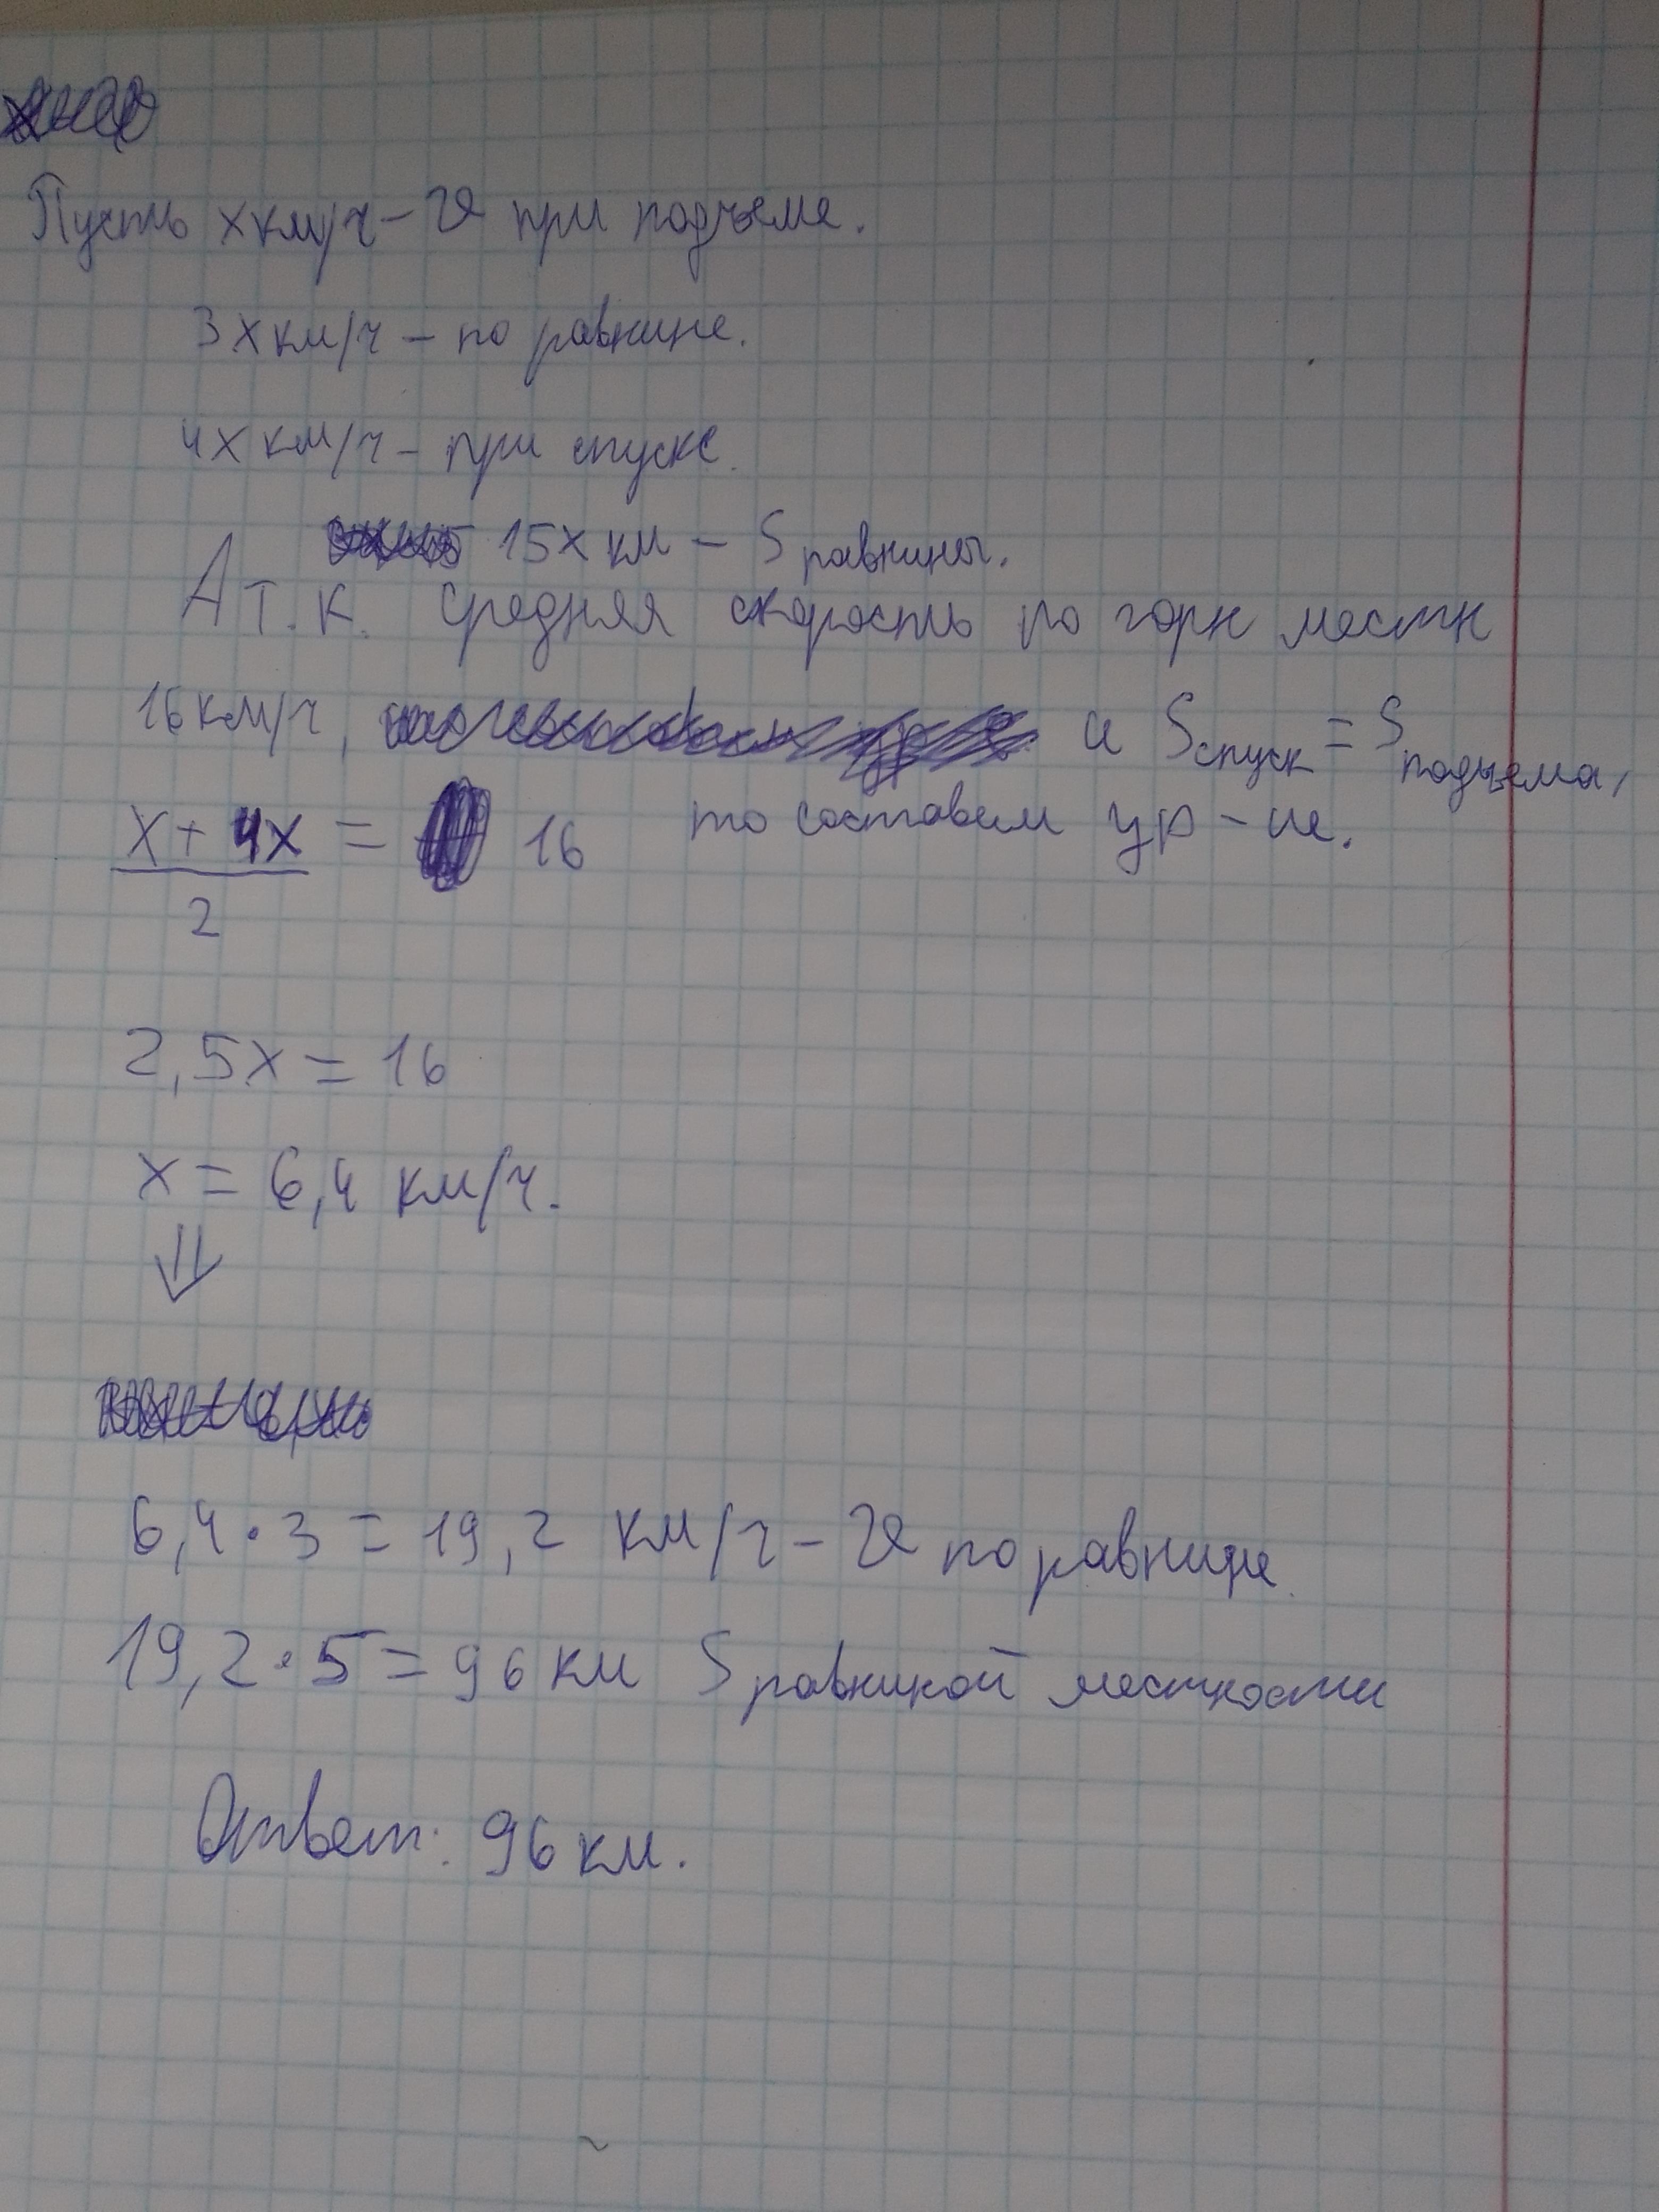 Пусть x км/ч – V при подъеме.
3x км/ч – по равнине.
4x км/ч – при спуске.
15x км – S равнины.
А т.к. средняя скорость по горн местн
16 км/ч, и S спуск = S подъема,
то составим ур-ие.
x + 4x = 16
2
2,5x = 16
x = 6,4 км/ч.
⇓
6,4 · 3 = 19,2 км/ч – V по равнине.
19,2 · 5 = 96 км S равниной местности
Ответ: 96 км.